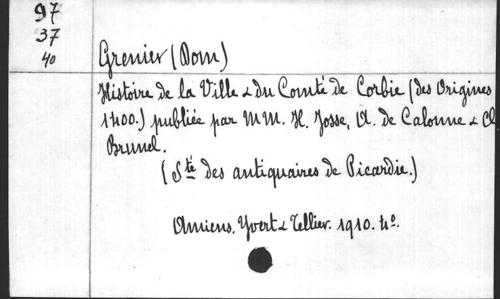 97
37
40
Grenier (Dom)
Histoire de la Ville & du Comté de Corbie (des Origines
1400.) publiée par MM. H. Josse, A. de Calonne & Cl
Brunel.
(Sté des antiquaires de Picardie.)
Amiens. Yvert & Tellier. 1910. 4o.